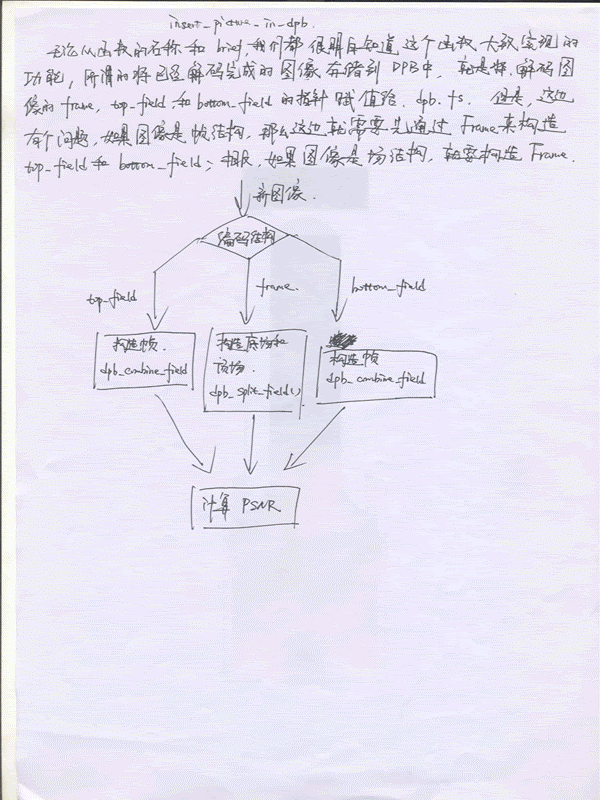 insert_picture_in_dpb.
无论从函数的名称和brief,我们都很明白知道这个函数大致实现的
功能,所谓的将已经解码完成的图像存储到DPB中,就是将解码图
像的frame,top_field和bottom_field的指针赋值给.dpb.fs. 但是,这边
有个问题,如果图像是帧结构,那么这边就需要先通过Frame来构造
top_field和bottom_field、相反,如果图像是场结构,就要构造Frame.
新图像.
编码结构
top_field
frame.
bottom_field
构造帧.
dpb_combine_field
构造底场和
顶场.
dpb_split_field()
构造帧
dpb_combine_field
计算 PSNR